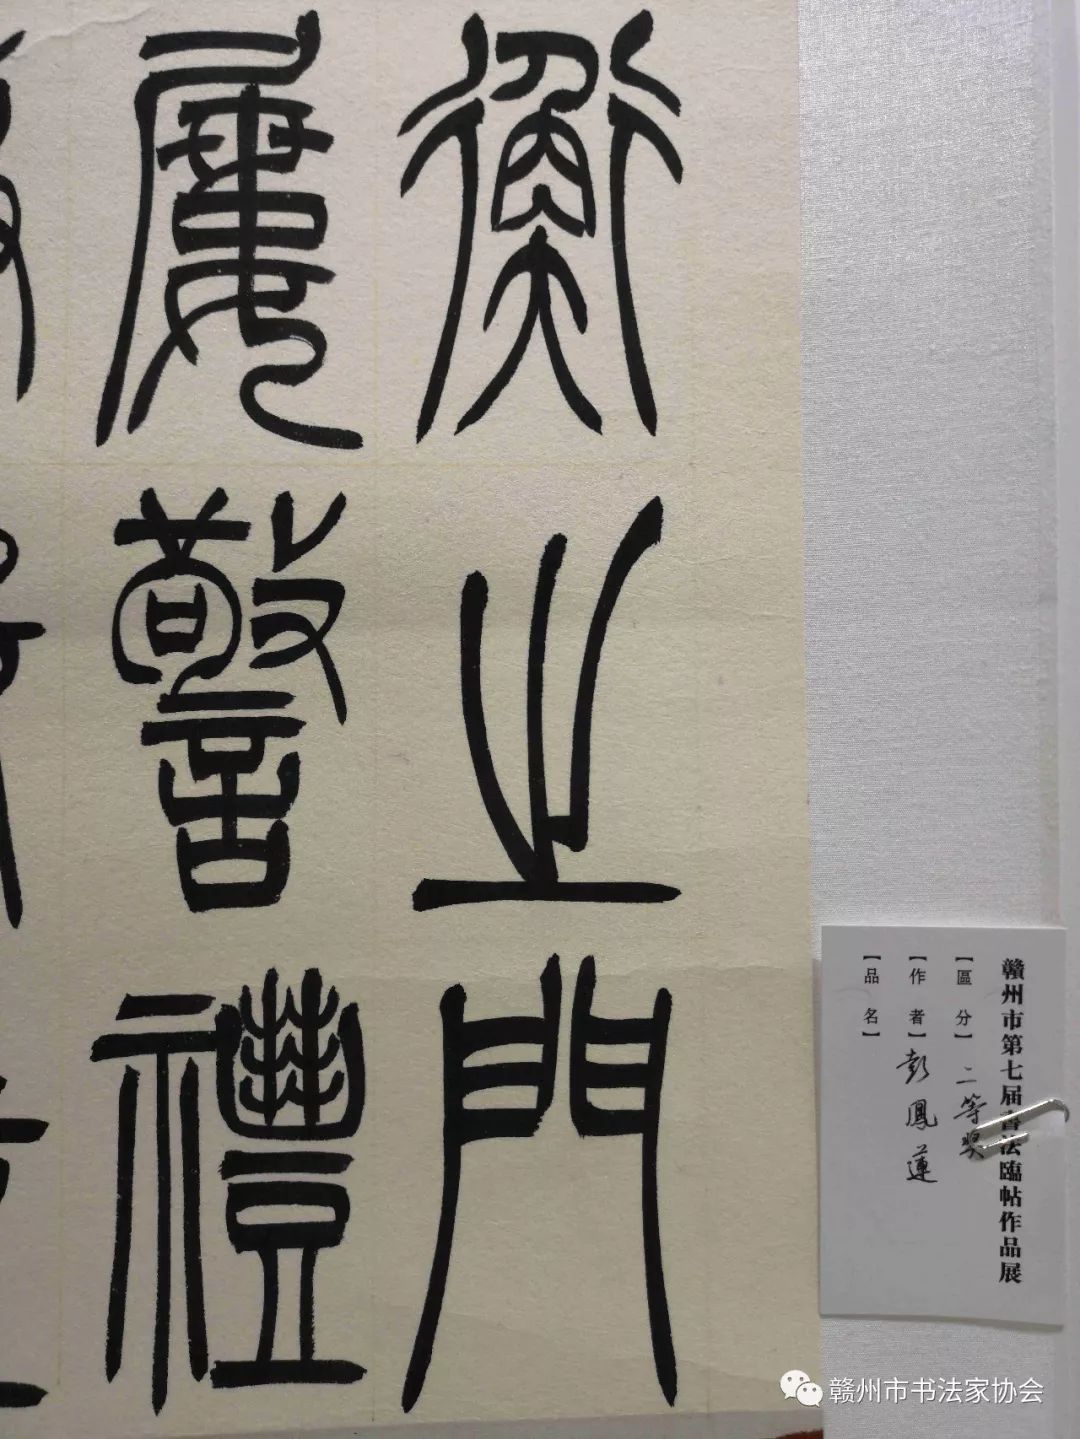 衡之門
屢警禮
贛州市第七届書法臨帖作品展
【區 分】二等奖
【作 者】彭鳳蓮
【品 名】
赣州市书法家协会